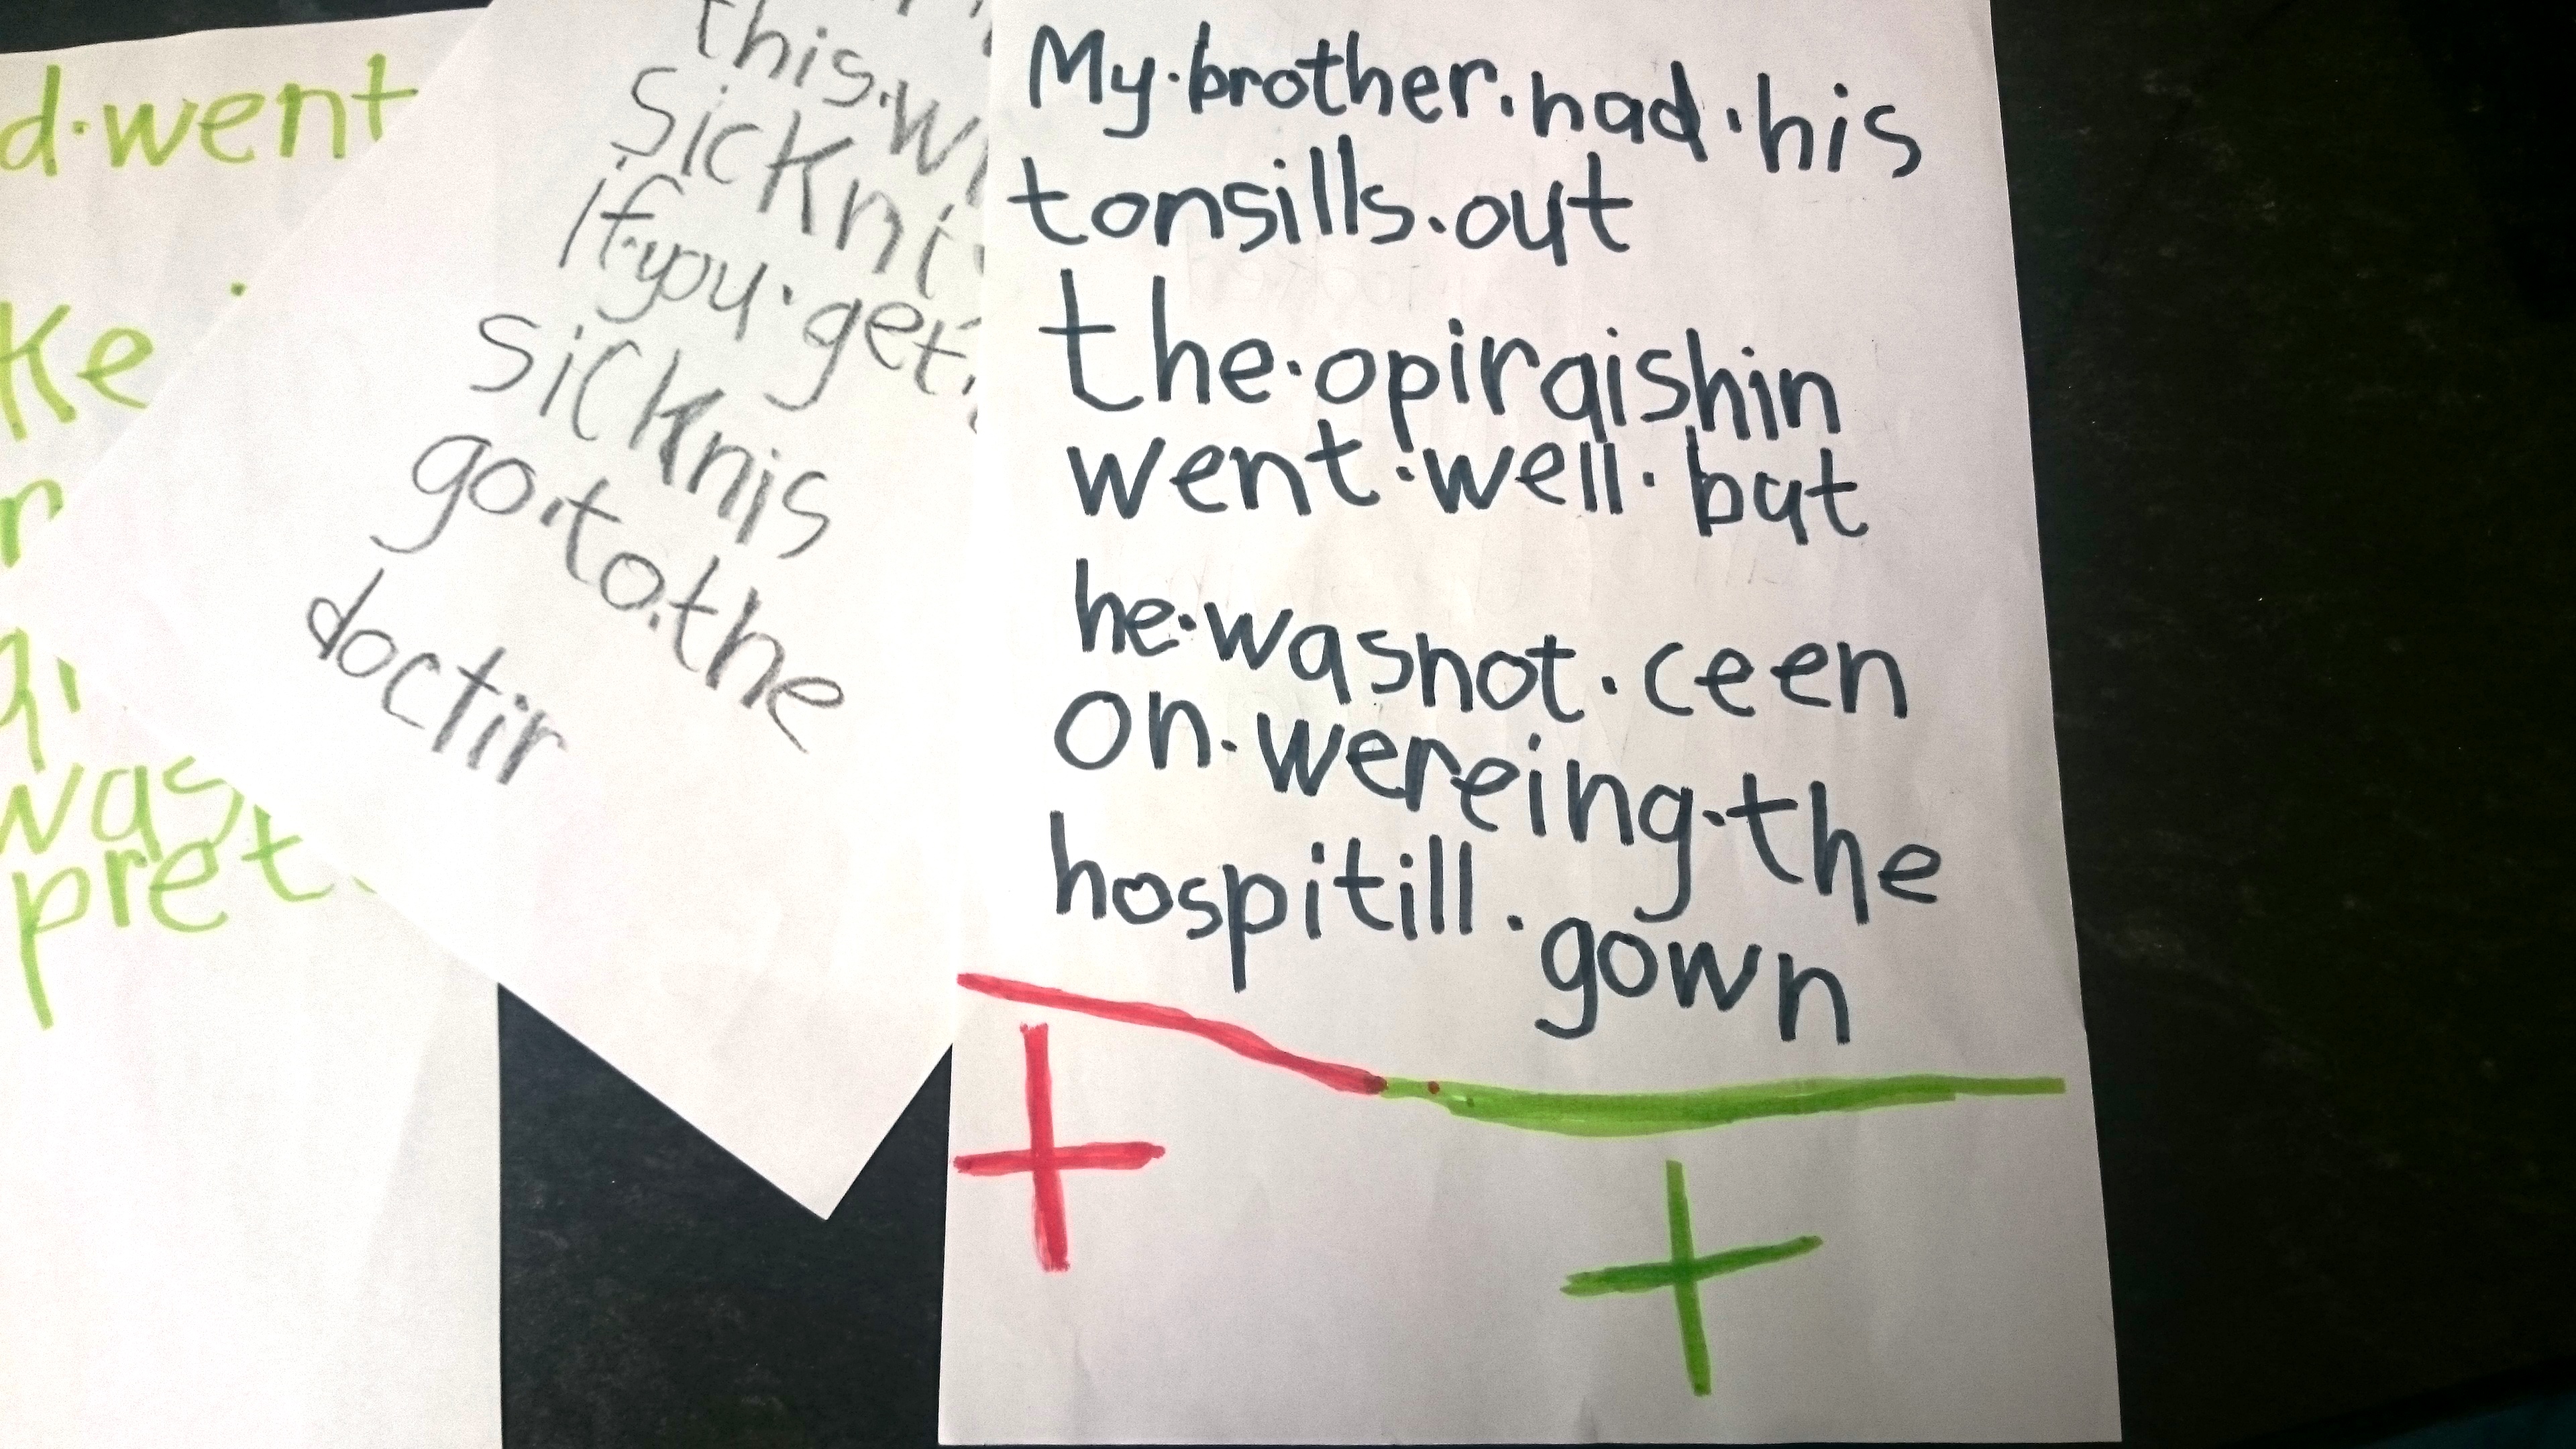 d.went
ke
r
was
pret.
this.wi
sicknis
if.you.get.
sicknis
go.to.the
doctir
My.brother.had.his
tonsills.out
the.opiraishin
went.well.but
he.wasnot.ceen
on.wereing.the
hospitill.gown